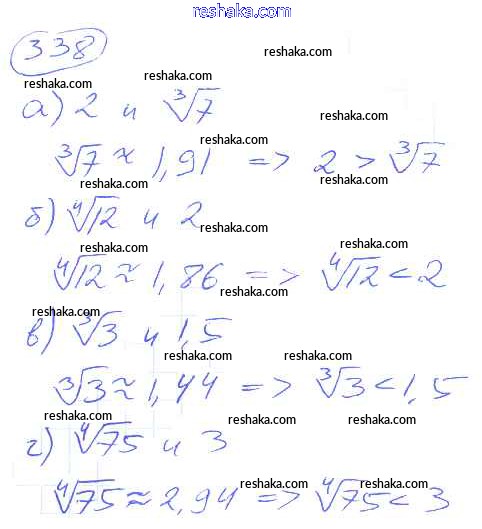 reshaka.com
338 reshaka.com
reshaka.com reshaka.com
а) 2 и ∛7
reshaka.com
reshaka.com
∛7 ≈ 1,91 => 2 > ∛7
reshaka.com reshaka.com
б) ∜12 и 2
reshaka.com
reshaka.com
∜12 ≈ 1,86 => ∜12 < 2
reshaka.com
reshaka.com
в) ∛3 и 1,5
reshaka.com reshaka.com
∛3 ≈ 1,44 => ∛3 < 1,5
reshaka.com reshaka.com reshaka.com
г) ∜75 и 3
reshaka.com reshaka.com
∜75 ≈ 2,94 => ∜75 < 3
reshaka.com